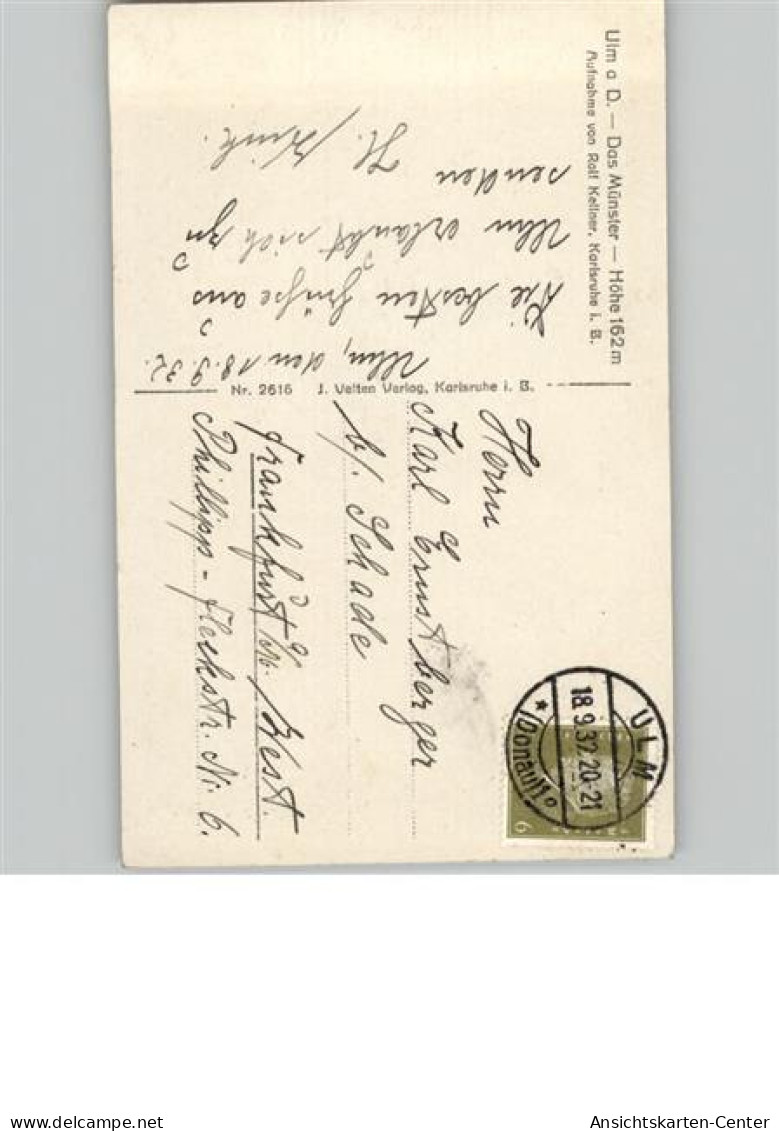 Ulm a D. — Das Münster — Höhe 162 m
Aufnahme von Rolf Kellner, Karlsruhe i. B.
Ulm, den 18.9.32.
Die besten Grüße aus
Ulm erlaubt sich zu
senden
H.
Nr. 2616 J. Velten Verlag, Karlsruhe i. B.
Herrn
Karl Ernst berger
b/. Schade
Frankfurt M. West.
Phillipp-Fleckstr. Nr. 6.
ULM
18.9.32.20-21
* (Donau)1 o
6
delcampe.net
Ansichtskarten-Center